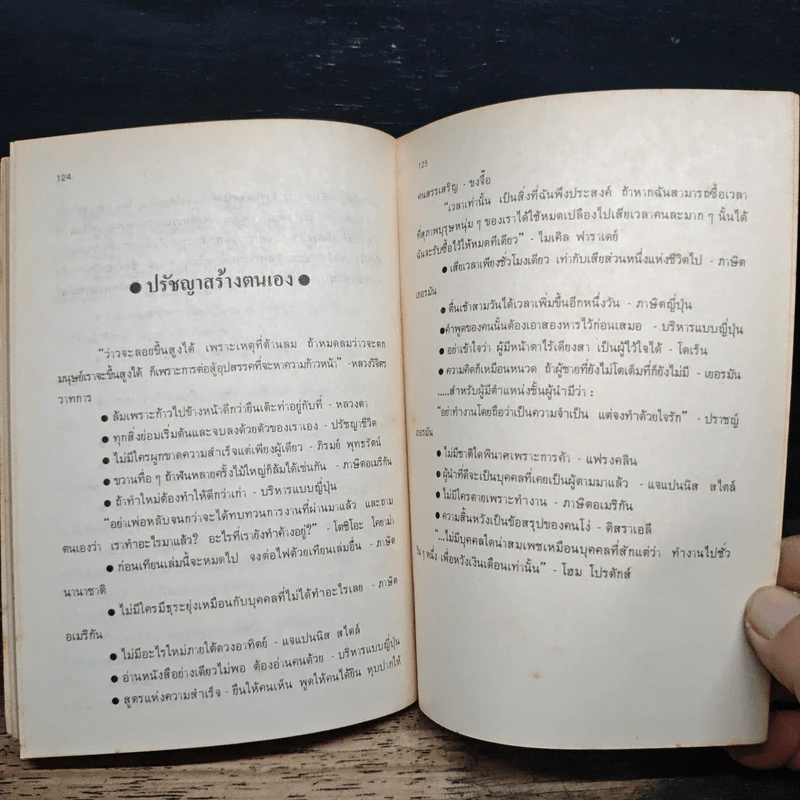 124
● ปรัชญาสร้างตนเอง ●
"ว่าวจะลอยขึ้นสูงได้ เพราะเหตุที่ต้านลม ถ้าหมดลมว่าวจะตก
มนุษย์เราจะขึ้นสูงได้ ก็เพราะการต่อสู้อุปสรรคที่จะหาความก้าวหน้า" -หลวงวิจิตร
วาทการ
● ล้มเพราะก้าวไปข้างหน้าดีกว่ายืนเต๊ะท่าอยู่กับที่ - หลวงตา
● ทุกสิ่งย่อมเริ่มต้นและจบลงด้วยตัวของเราเอง - ปรัชญาชีวิต
● ไม่มีใครผูกขาดความสำเร็จแต่เพียงผู้เดียว - ภิรมย์ พุทธรัตน์
● ขวานทื่อ ๆ ถ้าฟันหลายครั้งไม้ใหญ่ก็ล้มได้เช่นกัน - ภาษิตอเมริกัน
● ถ้าทำใหม่ต้องทำให้ดีกว่าเก่า - บริหารแบบญี่ปุ่น
"อย่าเพ่อหลับจนกว่าจะได้ทบทวนการงานที่ผ่านมาแล้ว และถาม
ตนเองว่า เราทำอะไรมาแล้ว? อะไรที่เรายังทำค้างอยู่?" - โตชิโอะ โดยามา
● ก่อนเทียนเล่มนี้จะหมดไป จงต่อไฟด้วยเทียนเล่มอื่น - ภาษิต
นานาชาติ
● ไม่มีใครมีธุระยุ่งเหมือนกับบุคคลที่ไม่ได้ทำอะไรเลย - ภาษิต
อเมริกัน
● ไม่มีอะไรใหม่ภายใต้ดวงอาทิตย์ - แจแปนนิส สไตล์
● อ่านหนังสืออย่างเดียวไม่พอ ต้องอ่านคนด้วย - บริหารแบบญี่ปุ่น
● สูตรแห่งความสำเร็จ - ยืนให้คนเห็น พูดให้คนได้ยิน หุบปากให้
125
คนสรรเสริญ - ขงจื๊อ
"เวลาเท่านั้น เป็นสิ่งที่ฉันพึงประสงค์ ถ้าหากฉันสามารถซื้อเวลา
ที่สุภาพบุรุษหนุ่ม ๆ ของเราได้ใช้หมดเปลืองไปเสียเวลาคนละมาก ๆ นั้นได้
ฉันจะรับซื้อไว้ให้หมดทีเดียว" - ไมเคิล ฟาราเดย์
● เสียเวลาเพียงชั่วโมงเดียว เท่ากับเสียส่วนหนึ่งแห่งชีวิตไป - ภาษิต
เยอรมัน
● ตื่นเช้าสามวันได้เวลาเพิ่มขึ้นอีกหนึ่งวัน - ภาษิตญี่ปุ่น
● คำพูดของคนนั้นต้องเอาสองหารไว้ก่อนเสมอ - บริหารแบบญี่ปุ่น
● อย่าเข้าใจว่า ผู้มีหน้าตาไร้เดียงสา เป็นผู้ไว้ใจได้ - โดเร็น
● ความคิดก็เหมือนหนวด ถ้าผู้ชายที่ยังไม่โตเต็มที่ก็ยังไม่มี - เยอรมัน
.....สำหรับผู้มีตำแหน่งชั้นผู้นำมีว่า :
"อย่าทำงานโดยถือว่าเป็นความจำเป็น แต่จงทำด้วยใจรัก" - ปราชญ์
เยอรมัน
● ไม่มีชาติใดพินาศเพราะการค้า - แฟรงคลิน
● ผู้นำที่ดีจะเป็นบุคคลที่เคยเป็นผู้ตามมาแล้ว - แจแปนนิส สไตล์
● ไม่มีใครตายเพราะทำงาน - ภาษิตอเมริกัน
● ความสิ้นหวังเป็นข้อสรุปของคนโง่ - ดิสราเอลี
"...ไม่มีบุคคลใดน่าสมเพชเหมือนบุคคลที่สักแต่ว่า ทำงานไปชั่ว
วัน ๆ หนึ่ง เพื่อหวังเงินเดือนเท่านั้น" - โฮม โปรดักส์